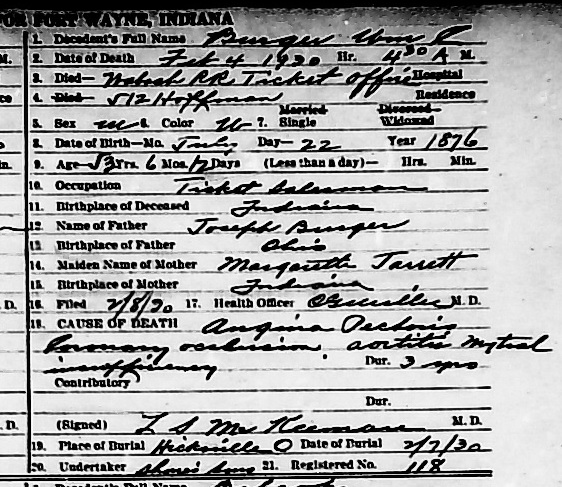 FOR FORT WAYNE, INDIANA
1. Decedent's Full Name Burger Wm C
M. 2. Date of Death Feb 4 1930 Hr. 4 30 A M.
3. Died— Wabash RR Ticket Office Hospital
ce 4. Died— 512 Hoffman Residence
5. Sex m 6. Color W 7. Married Single Divorced Widowed
8. Date of Birth—Mo. July Day— 22 Year 1876
in. 9. Age— 53 Yrs. 6 Mos. 12 Days (Less than a day)— Hrs. Min.
10. Occupation Ticket Salesman
11. Birthplace of Deceased Indiana
12. Name of Father Joseph Burger
13. Birthplace of Father Ohio
14. Maiden Name of Mother Margarette Jarrett
15. Birthplace of Mother Indiana
D. 16. Filed 2/8/30 17. Health Officer M. D.
18. CAUSE OF DEATH Angina Pectoris
Coronary occlusion aortitis Mytral
insufficiency Dur. 3 yrs
Contributory
Dur.
D. (Signed) L S McKeeman M. D.
19. Place of Burial Hicksville O Date of Burial 2/7/30
20. Undertaker Sons 21. Registered No. 118
1. Decedent's Full Name